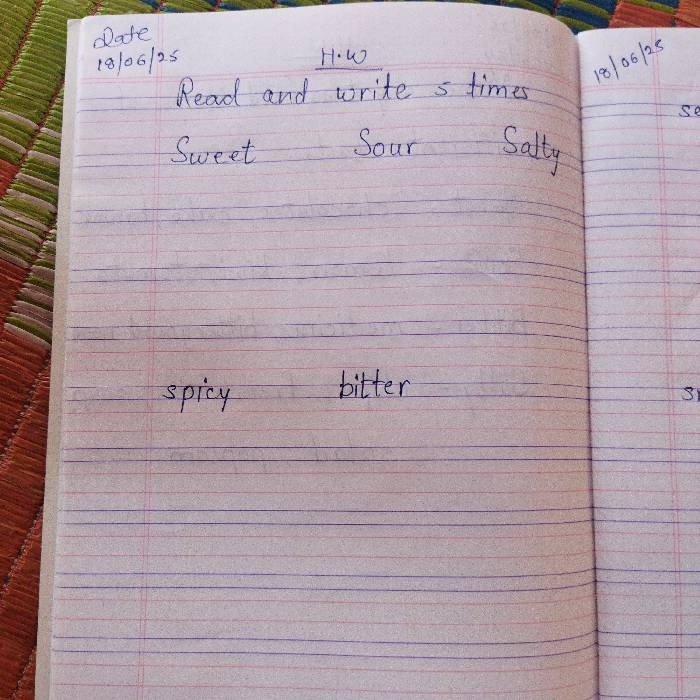 Date
18/06/25
H.W
Read and write 5 times
Sweet Sour Salty
spicy bitter
18/06/25
se